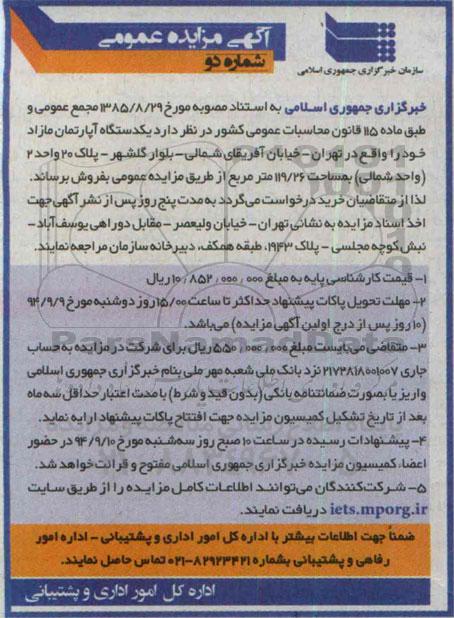 آگهی مزایده عمومی
شماره دو
سازمان خبرگزاری جمهوری اسلامی
خبرگزاری جمهوری اسلامی به استناد مصوبه مورخ ۱۳۸۵/۸/۲۹ مجمع عمومی و
طبق ماده ۱۱۵ قانون محاسبات عمومی کشور در نظر دارد یکدستگاه آپارتمان مازاد
خود را واقع در تهران - خیابان آفریقای شمالی - بلوار گلشهر - پلاک ۲۰ واحد ۲
(واحد شمالی) بمساحت ۱۱۹/۲۶ متر مربع از طریق مزایده عمومی بفروش برساند.
لذا از متقاضیان خرید درخواست می‌گردد به مدت پنج روز پس از نشر آگهی جهت
اخذ اسناد مزایده به نشانی تهران - خیابان ولیعصر - مقابل دوراهی یوسف‌آباد -
نبش کوچه مجلسی - پلاک ۱۹۴۳، طبقه همکف، دبیرخانه سازمان مراجعه نمایند.
۱- قیمت کارشناسی پایه به مبلغ ۱۰,۸۵۲,۰۰۰,۰۰۰ ریال
۲- مهلت تحویل پاکات پیشنهاد حداکثر تا ساعت ۱۵/۰۰ روز دوشنبه مورخ ۹۴/۹/۹
(۱۰ روز پس از درج اولین آگهی مزایده) می‌باشد.
۳- متقاضی می‌بایست مبلغ ۵۵۰,۰۰۰,۰۰۰ ریال برای شرکت در مزایده به حساب
جاری ۲۱۷۳۸۱۸۰۰۱۰۰۷ نزد بانک ملی شعبه مهر ملی بنام خبرگزاری جمهوری اسلامی
واریز یا بصورت ضمانتنامه بانکی (بدون قید و شرط) با مدت اعتبار حداقل سه ماه
بعد از تاریخ تشکیل کمیسیون مزایده جهت افتتاح پاکات پیشنهاد ارایه نماید.
۴- پیشنهادات رسیده در ساعت ۱۰ صبح روز سه‌شنبه مورخ ۹۴/۹/۱۰ در حضور
اعضاء کمیسیون مزایده خبرگزاری جمهوری اسلامی مفتوح و قرائت خواهد شد.
۵- شرکت‌کنندگان می‌توانند اطلاعات کامل مزایده را از طریق سایت
iets.mporg.ir دریافت نمایند.
ضمناً جهت اطلاعات بیشتر با اداره کل امور اداری و پشتیبانی - اداره امور
رفاهی و پشتیبانی بشماره ۸۲۹۲۳۴۲۱-۰۲۱ تماس حاصل نمایند.
اداره کل امور اداری و پشتیبانی